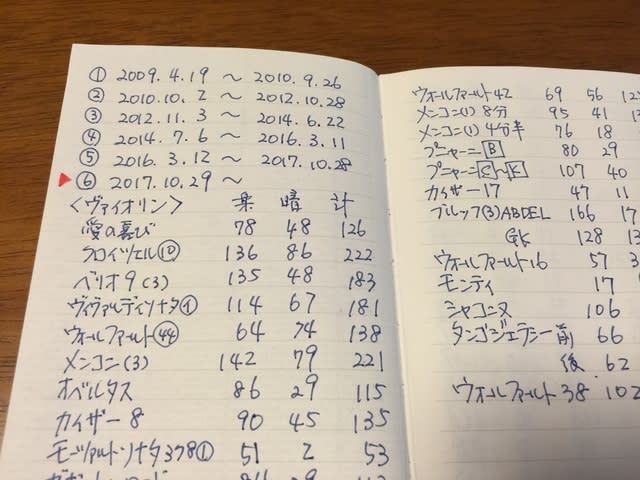 ① 2009. 4. 19 ～ 2010. 9. 26
② 2010. 10. 2 ～ 2012. 10. 28
③ 2012. 11. 3 ～ 2014. 6. 22
④ 2014. 7. 6 ～ 2016. 3. 11
⑤ 2016. 3. 12 ～ 2017. 10. 28
⑥ 2017. 10. 29 ～
<ヴァイオリン> 果 晴 計
愛の喜び 78 48 126
クロイツェル⑩ 136 86 222
ベリオ9(3) 135 48 183
ヴィヴァルディソナタ① 114 67 181
ウォールファールト㊹ 64 74 138
メンコン(3) 142 79 221
オベルタス 86 29 115
カイザー8 90 45 135
モーツァルトソナタ378① 51 2 53
ウォールファールト42 69 56
メンコン(1) 8分 95 41
メンコン(1) 4分半 76 18
プニャーニ B 80 29
プニャーニ C～K 107 40
カイザー17 47 11
ブルッフ(3)ABDEL 166 17
GK 128
ウォールファールト16 57
モンティ 17
シャコンヌ 106
タンゴジェラシー前 66
後 62
ウォールファールト38 102